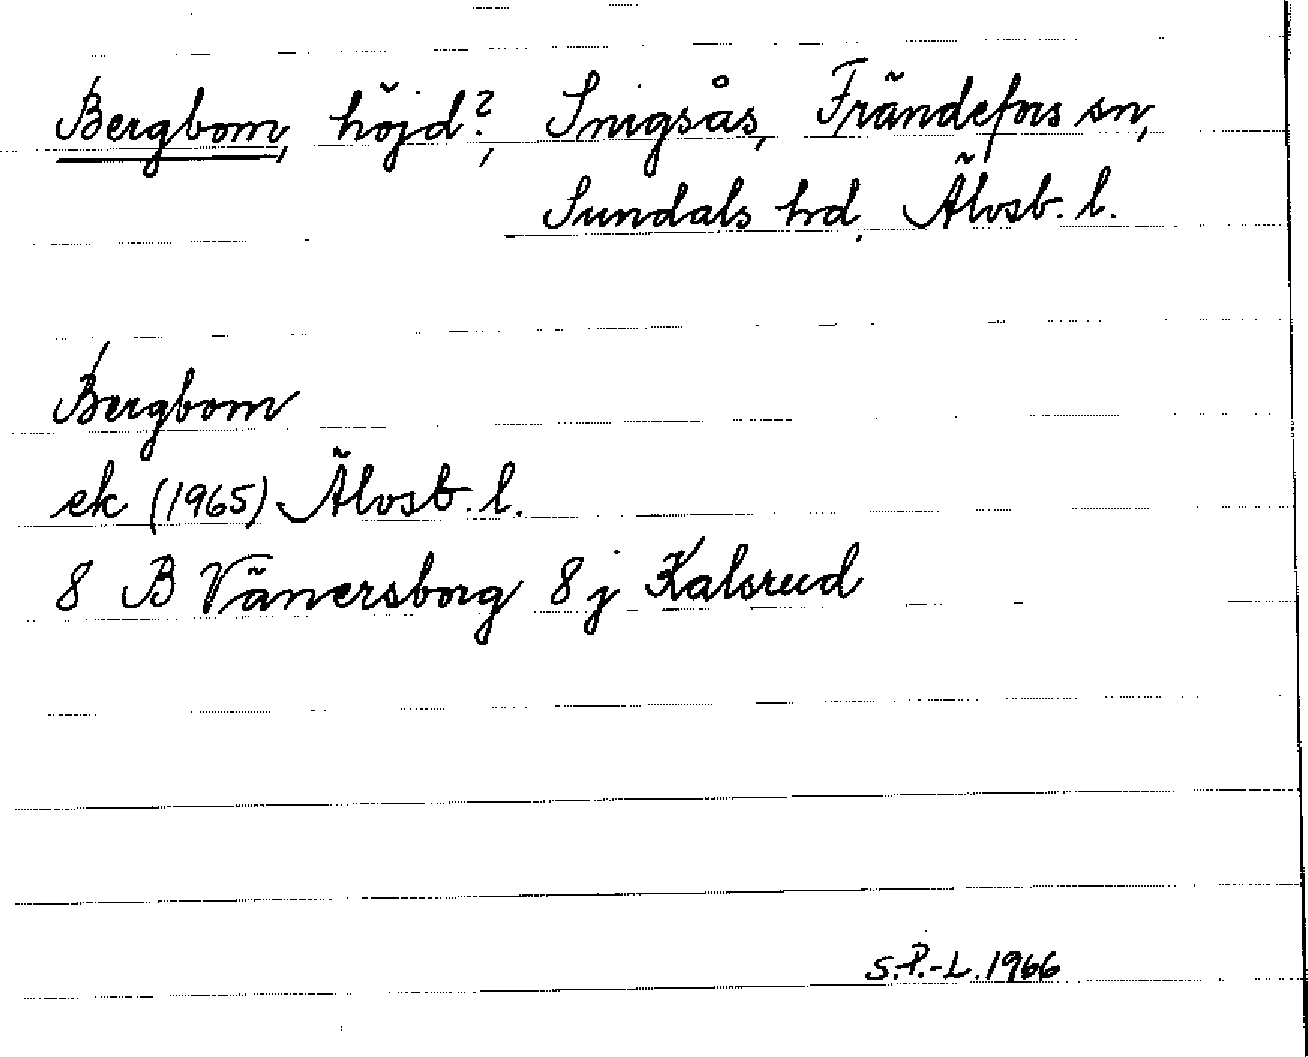 Bergbom, höjd?, Snigsås, Frändefors sn,
Sundals hd, Älvsb. l.
Bergbom
ek (1965) Älvsb. l.
8 B Vänersborg 8 j Kalsrud
S.P.-L. 1966